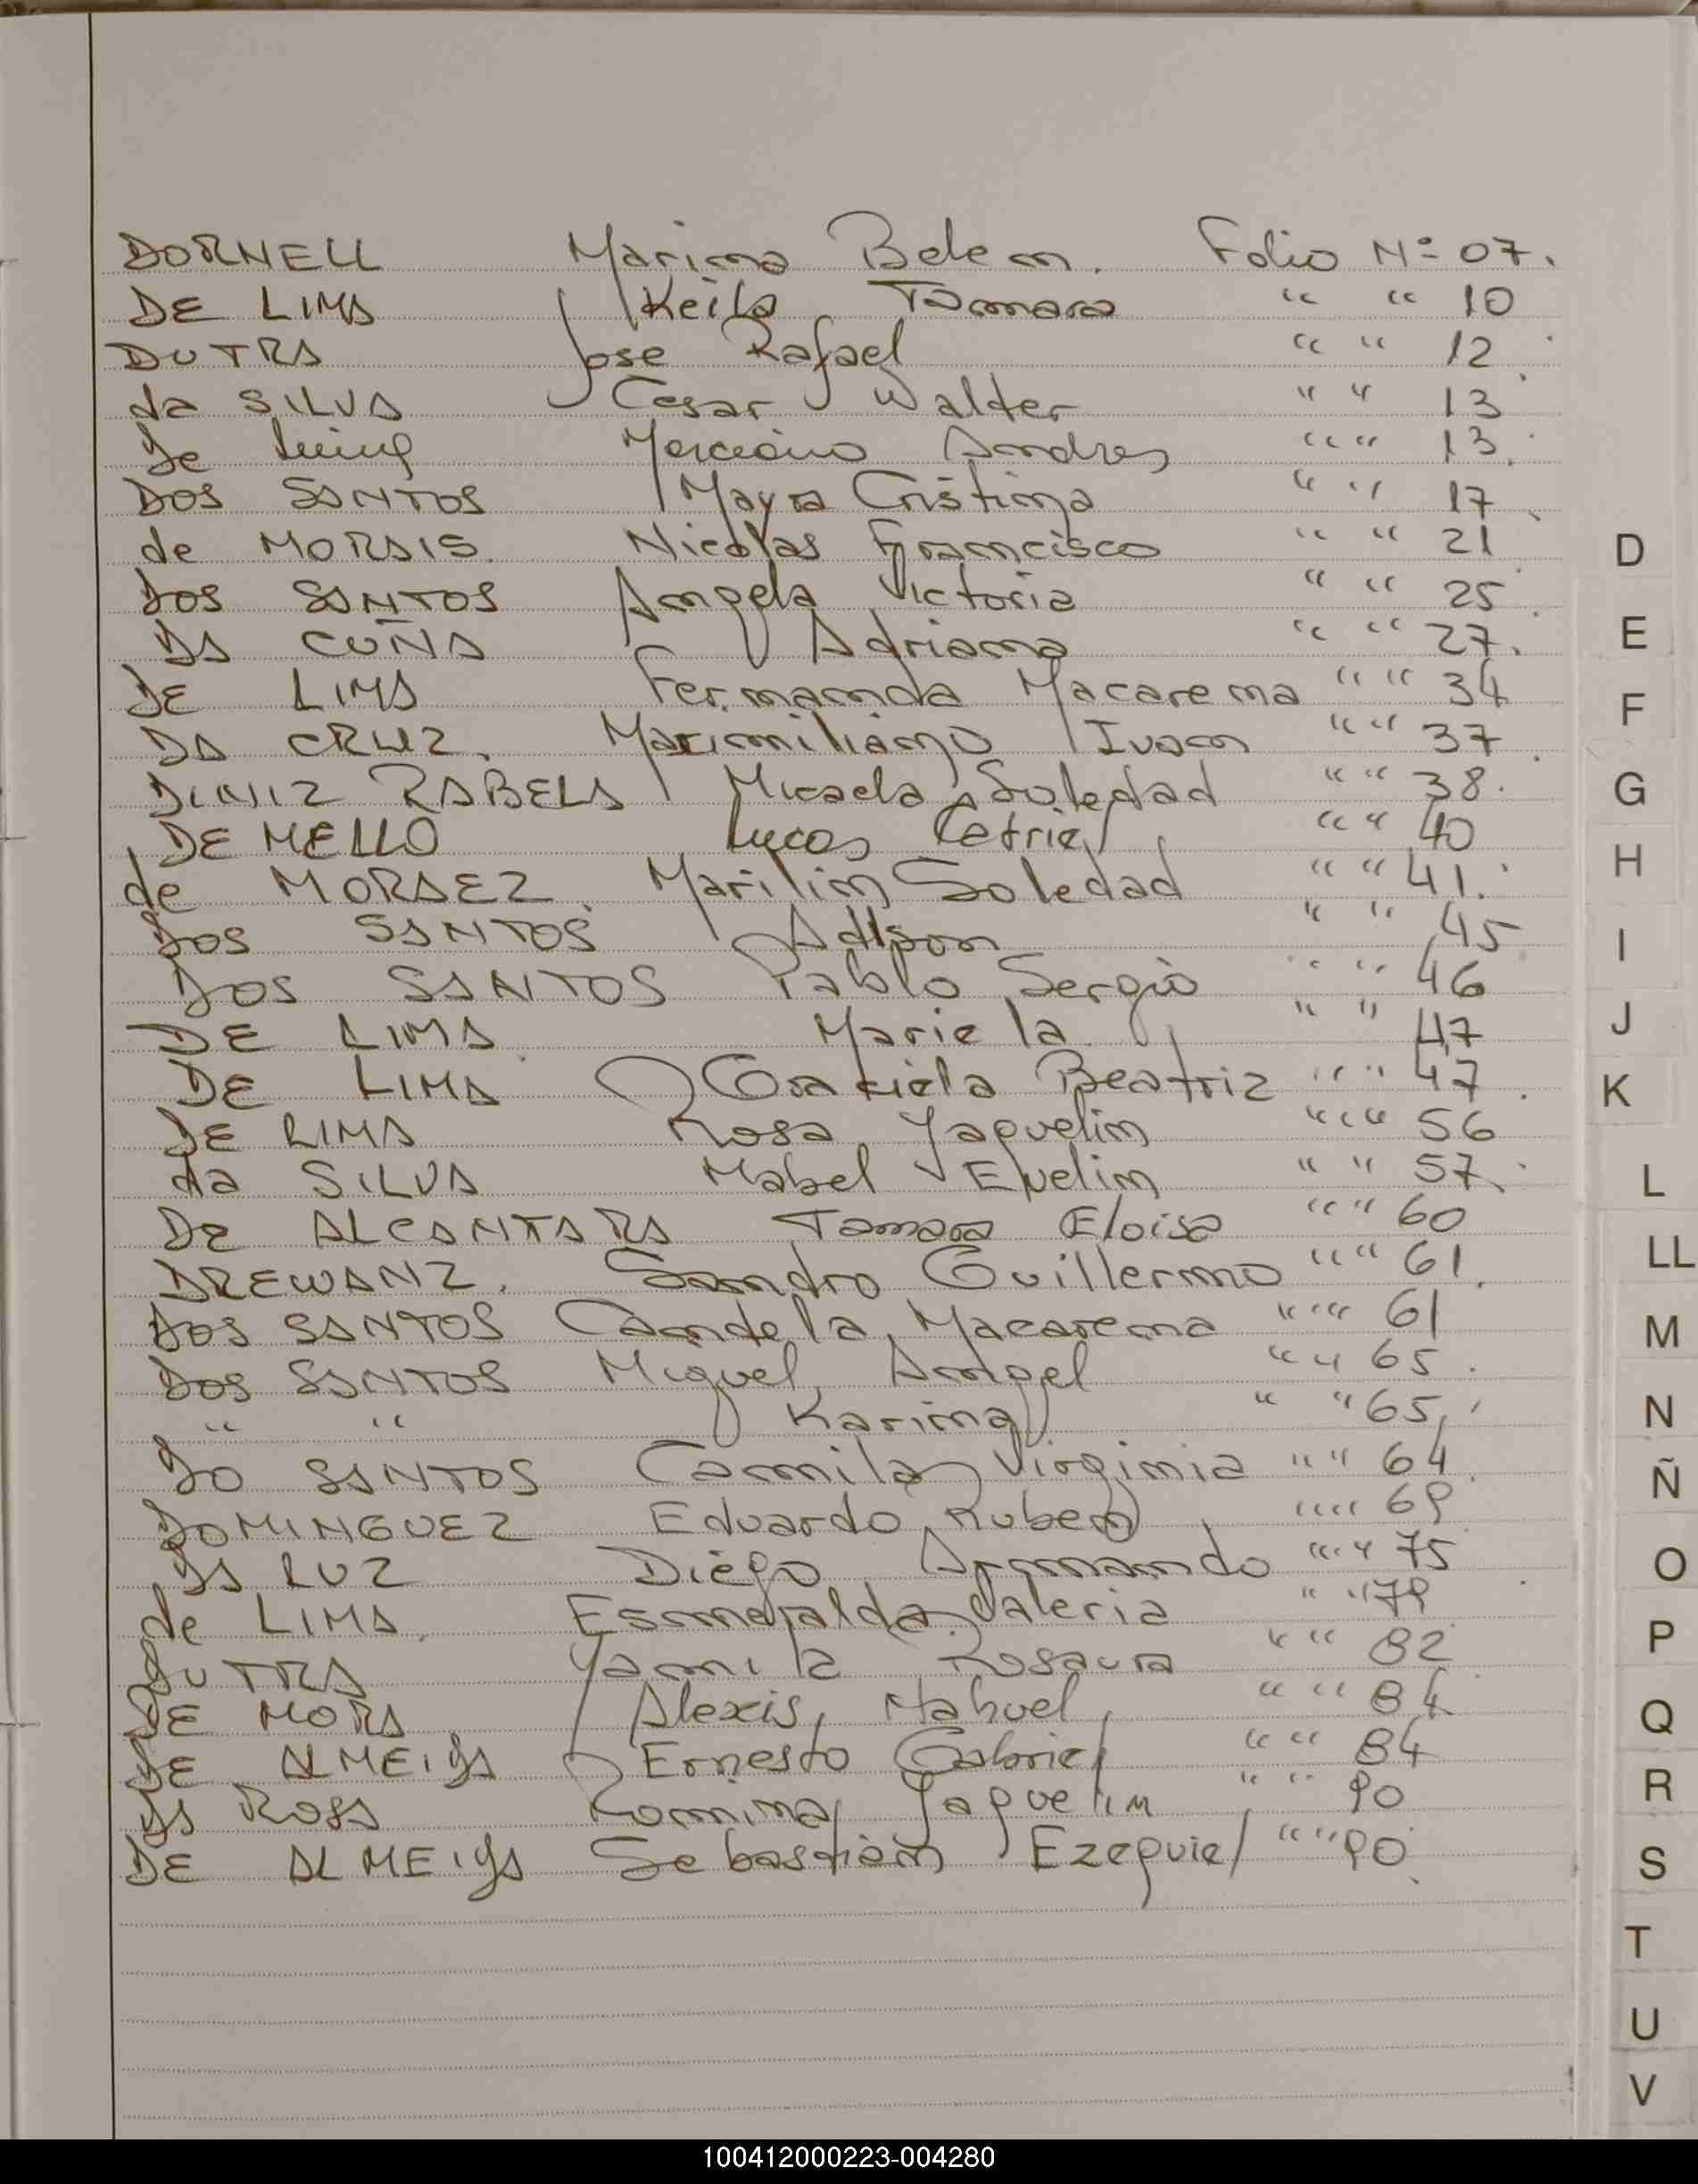 DORNELL Marina Belem. Folio Nº 07.
DE LIMA Keila Tamara " " 10
DUTRA Jose Rafael " " 12
da SILVA Cesar Walter " " 13
de Marciano Andres " " 13.
DOS SANTOS Mayra Cristina " " 17
de MORAIS. Nicolas Francisco " " 21
DOS SANTOS Angela Victoria " " 25
DA CUÑA Adriana " " 27.
DE LIMA Fernanda Macarena " " 34
DA CRUZ. Maximiliano Ivan " " 37
DINIZ RABELA Micaela Soledad " " 38.
DE MELLO Lucas Catriel " " 40
de MORAEZ Marilin Soledad " " 41.
DOS SANTOS Adlson " " 45
DOS SANTOS Pablo Sergio " " 46
DE LIMA Mariela " " 47
DE LIMA Graciela Beatriz " " 47
DE LIMA Rosa Yaquelin " " 56
da SILVA Mabel Evelin " " 57
De ALCANTARA Tamara Eloisa " " 60
DREWANZ. Sandro Guillermo " " 61.
DOS SANTOS Candela Macarena " " 61
DOS SANTOS Miguel Angel " " 65.
" " Karina " " 65
DO SANTOS Camila Virginia " " 64
DOMINGUEZ Eduardo Ruben " " 69
DA LUZ Diego Armando " " 75
de LIMA Esmeralda Valeria " " 79
DUTRA Yamila Rosaura " " 82
DE MORA Alexis Nahuel " " 84
DE ALMEIDA Ernesto Gabriel " " 84
DA ROSA Romina Yaquelin " " 90
DE ALMEIDA Sebastian Ezequiel " " 90
D
E
F
G
H
I
J
K
L
LL
M
N
Ñ
O
P
Q
R
S
T
U
V
100412000223-004280